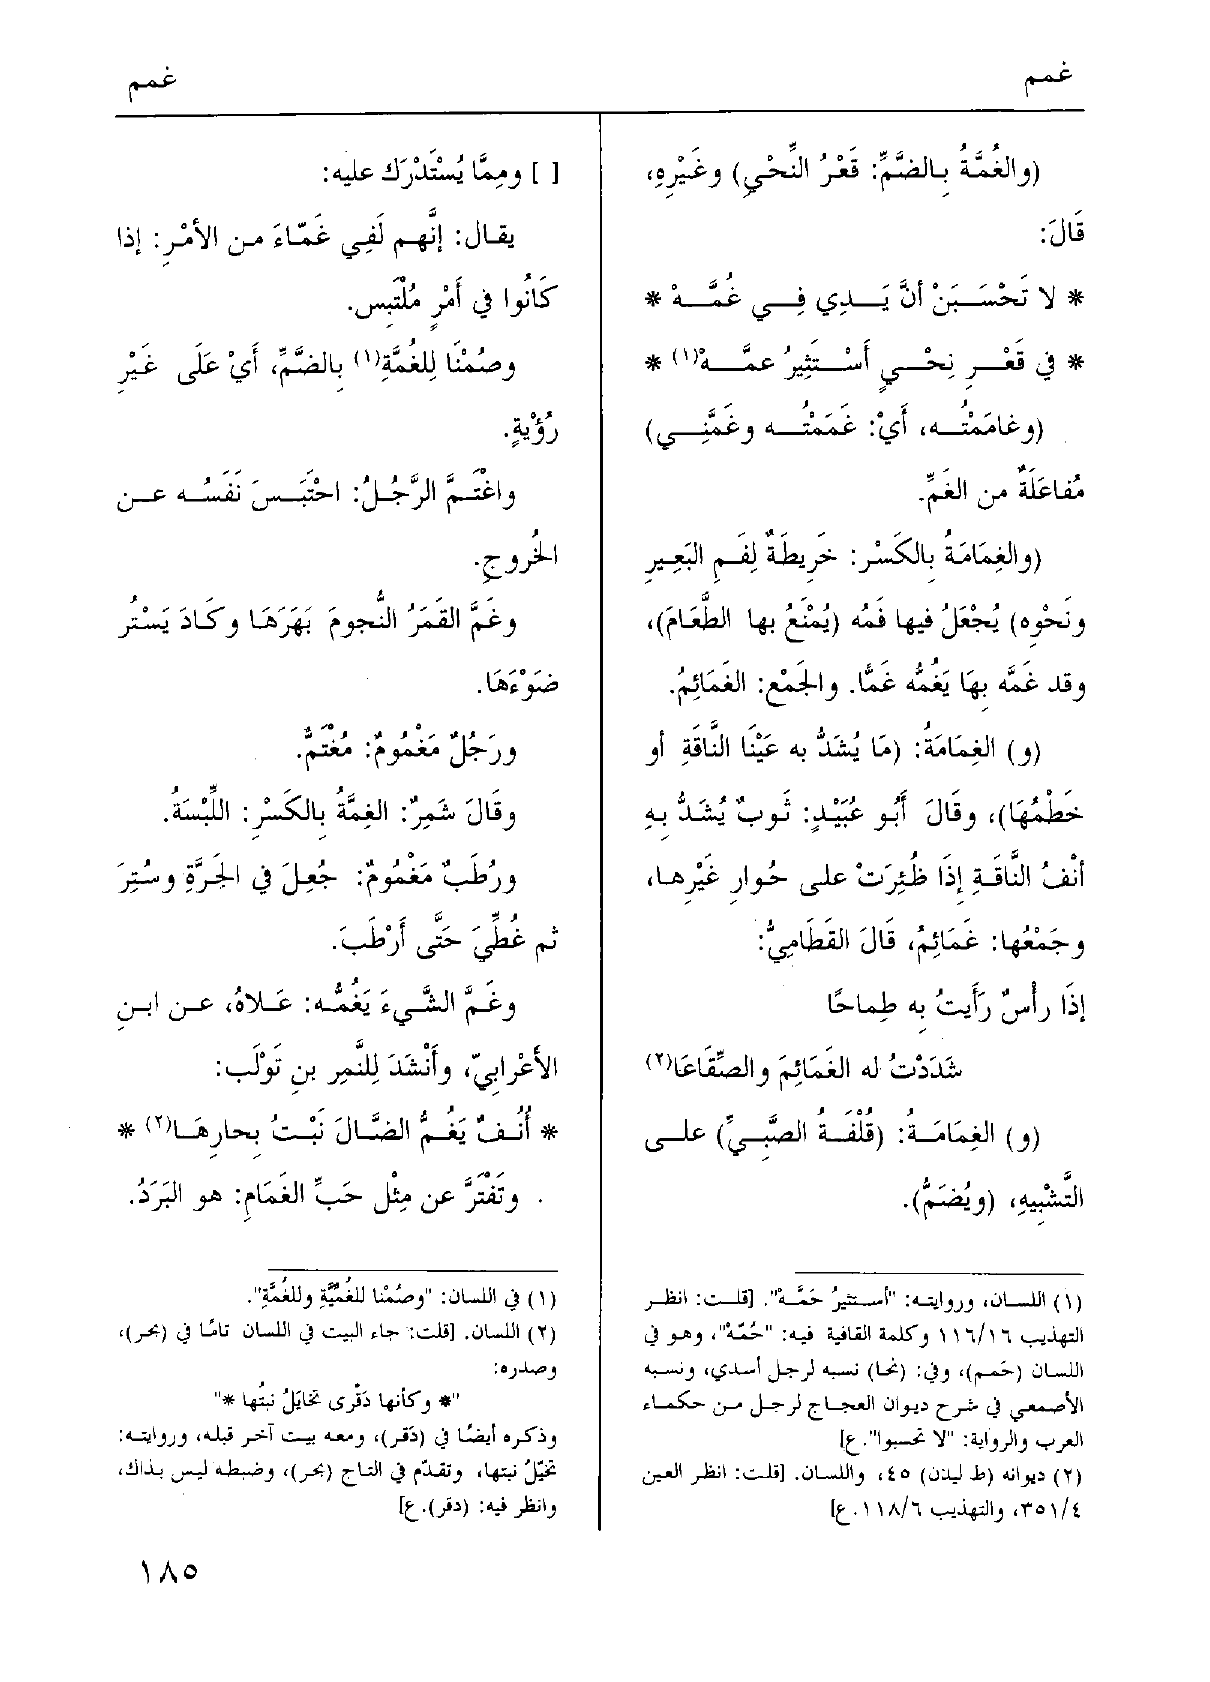 غمم
غمم
(والغُمَّةُ بِالضَّمِّ: قَعْرُ النِّحْيِ) وغَيْرِهِ،
قَالَ:
* لا تَحْسَبَنْ أنَّ يَدِي فِي غُمَّهْ *
* في قَعْرِ نِحْيٍ أَسْتَثِيرُ عمَّهْ(١) *
(وغامَمْتُه، أيْ: غَمَمْتُه وغَمَّنِي)
مُفاعَلَةٌ من الغَمِّ.
(والغِمَامَةُ بِالكَسْرِ: خَرِيطَةٌ لِفَمِ البَعِيرِ
ونَحْوِه) يُجْعَلُ فيها فَمُه (يُمْنَعُ بها الطَّعَامَ)،
وقد غَمَّه بِهَا يَغُمُّه غَمًّا. والجَمْع: الغَمَائِمُ.
(و) الغِمَامَةُ: (مَا يُشَدُّ به عَيْنَا النَّاقَةِ أو
خَطْمُهَا)، وقَالَ أَبُو عُبَيْدٍ: ثَوبٌ يُشَدُّ بِهِ
أنْفُ النَّاقَةِ إذَا ظُئِرَتْ على حُوارِ غَيْرِها،
وجَمْعُها: غَمَائِمُ، قَالَ القَطَامِيُّ:
إذَا رأْسٌ رَأَيتُ بِه طِماحًا
شَدَدْتُ له الغَمَائِمَ والصِّقَاعَا(٢)
(و) الغِمَامَةُ: (قُلْفَةُ الصَّبِيِّ) على
التَّشْبِيهِ، (ويُضَمُّ).
(١) اللسان، وروايته: "أستثيرُ حَمَّهْ". [قلت: انظر
التهذيب ١١٦/١٦ وكلمة القافية فيه: "حُمَّهْ"، وهو في
اللسان (حَمم)، وفي: (نحا) نسبه لرجل أسدي، ونسبه
الأصمعي في شرح ديوان العجاج لرجل من حكماء
العرب والرواية: "لا تحسبوا". ع]
(٢) ديوانه (ط ليدن) ٤٥، واللسان. [قلت: انظر العين
٣٥١/٤، والتهذيب ١١٨/٦. ع]
[ ] ومِمَّا يُسْتَدْرَك عليه:
يقال: إنَّهم لَفِي غَمّاءَ من الأمْرِ: إذا
كَانُوا في أَمْرٍ مُلْتَبِس.
وصُمْنَا لِلغُمَّةِ(١) بِالضَّمِّ، أيْ عَلَى غَيْرِ
رُؤْيةٍ.
واغتَمَّ الرَّجُلُ: احْتَبَسَ نَفَسُه عن
الخُروجِ.
وغَمَّ القَمَرُ النُّجومَ بَهَرَهَا وكَادَ يَسْتُر
ضَوْءَهَا.
ورَجُلٌ مَغْمُومٌ: مُغْتَمٌّ.
وقَالَ شَمِرٌ: الغِمَّةُ بِالكَسْرِ: اللِّبْسَةُ.
ورُطَبٌ مَغْمُومٌ: جُعِلَ في الجَرَّةِ وسُتِرَ
ثم غُطِّيَ حَتَّى أَرْطَبَ.
وغَمَّ الشَّيءَ يَغُمُّه: عَلاهُ، عن ابنِ
الأعْرابيّ، وأَنْشَدَ لِلنَّمِرِ بنِ تَوْلَب:
* أُنُفٌ يَغُمُّ الضَّالَ نَبْتُ بِحارِهَا(٢) *
وتَفْتَرَّ عن مِثْلِ حَبِّ الغَمَامِ: هو البَرَدُ.
(١) في اللسان: "وصُمْنا للغُمِّيَّةِ وللغُمَّةِ".
(٢) اللسان. [قلت: جاء البيت في اللسان تامًا في (بحر)،
وصدره:
"* وكأنها دَقَرى تخايَلُ نبتُها *"
وذكره أيضًا في (دَقر)، ومعه بيت آخر قبله، وروايته:
تخيّلُ نبتها، وتقدّم في التاج (بحر)، وضبطه ليس بذاك،
وانظر فيه: (دقر). ع]
١٨٥